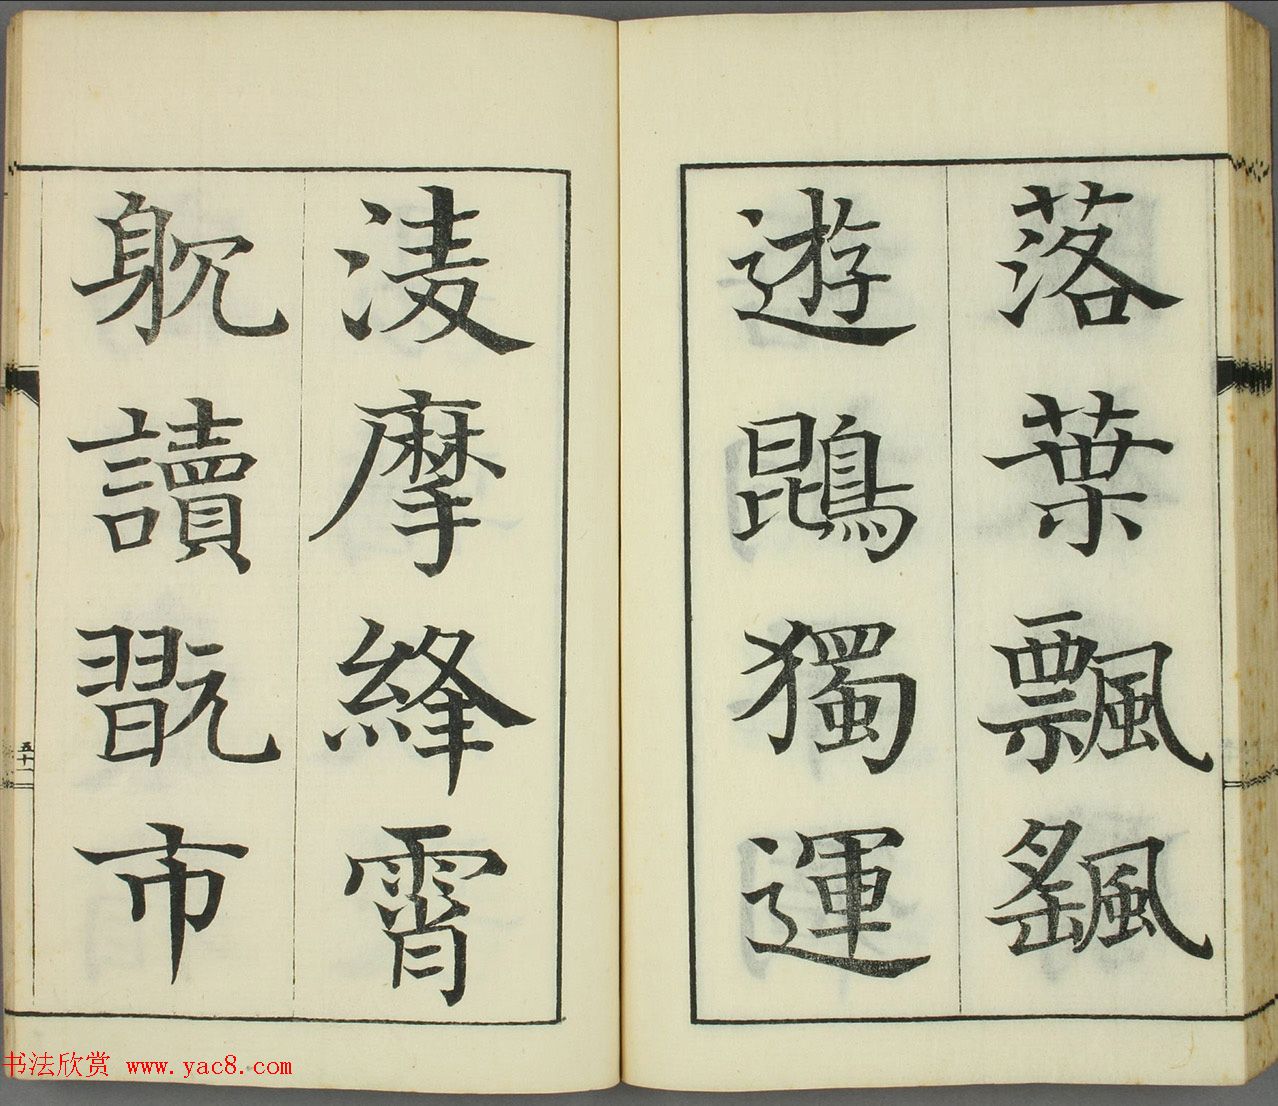 落葉飄颻
遊鵾獨運
淩摩絳霄
躭讀翫市
五十一
书法欣赏 www.yac8.com